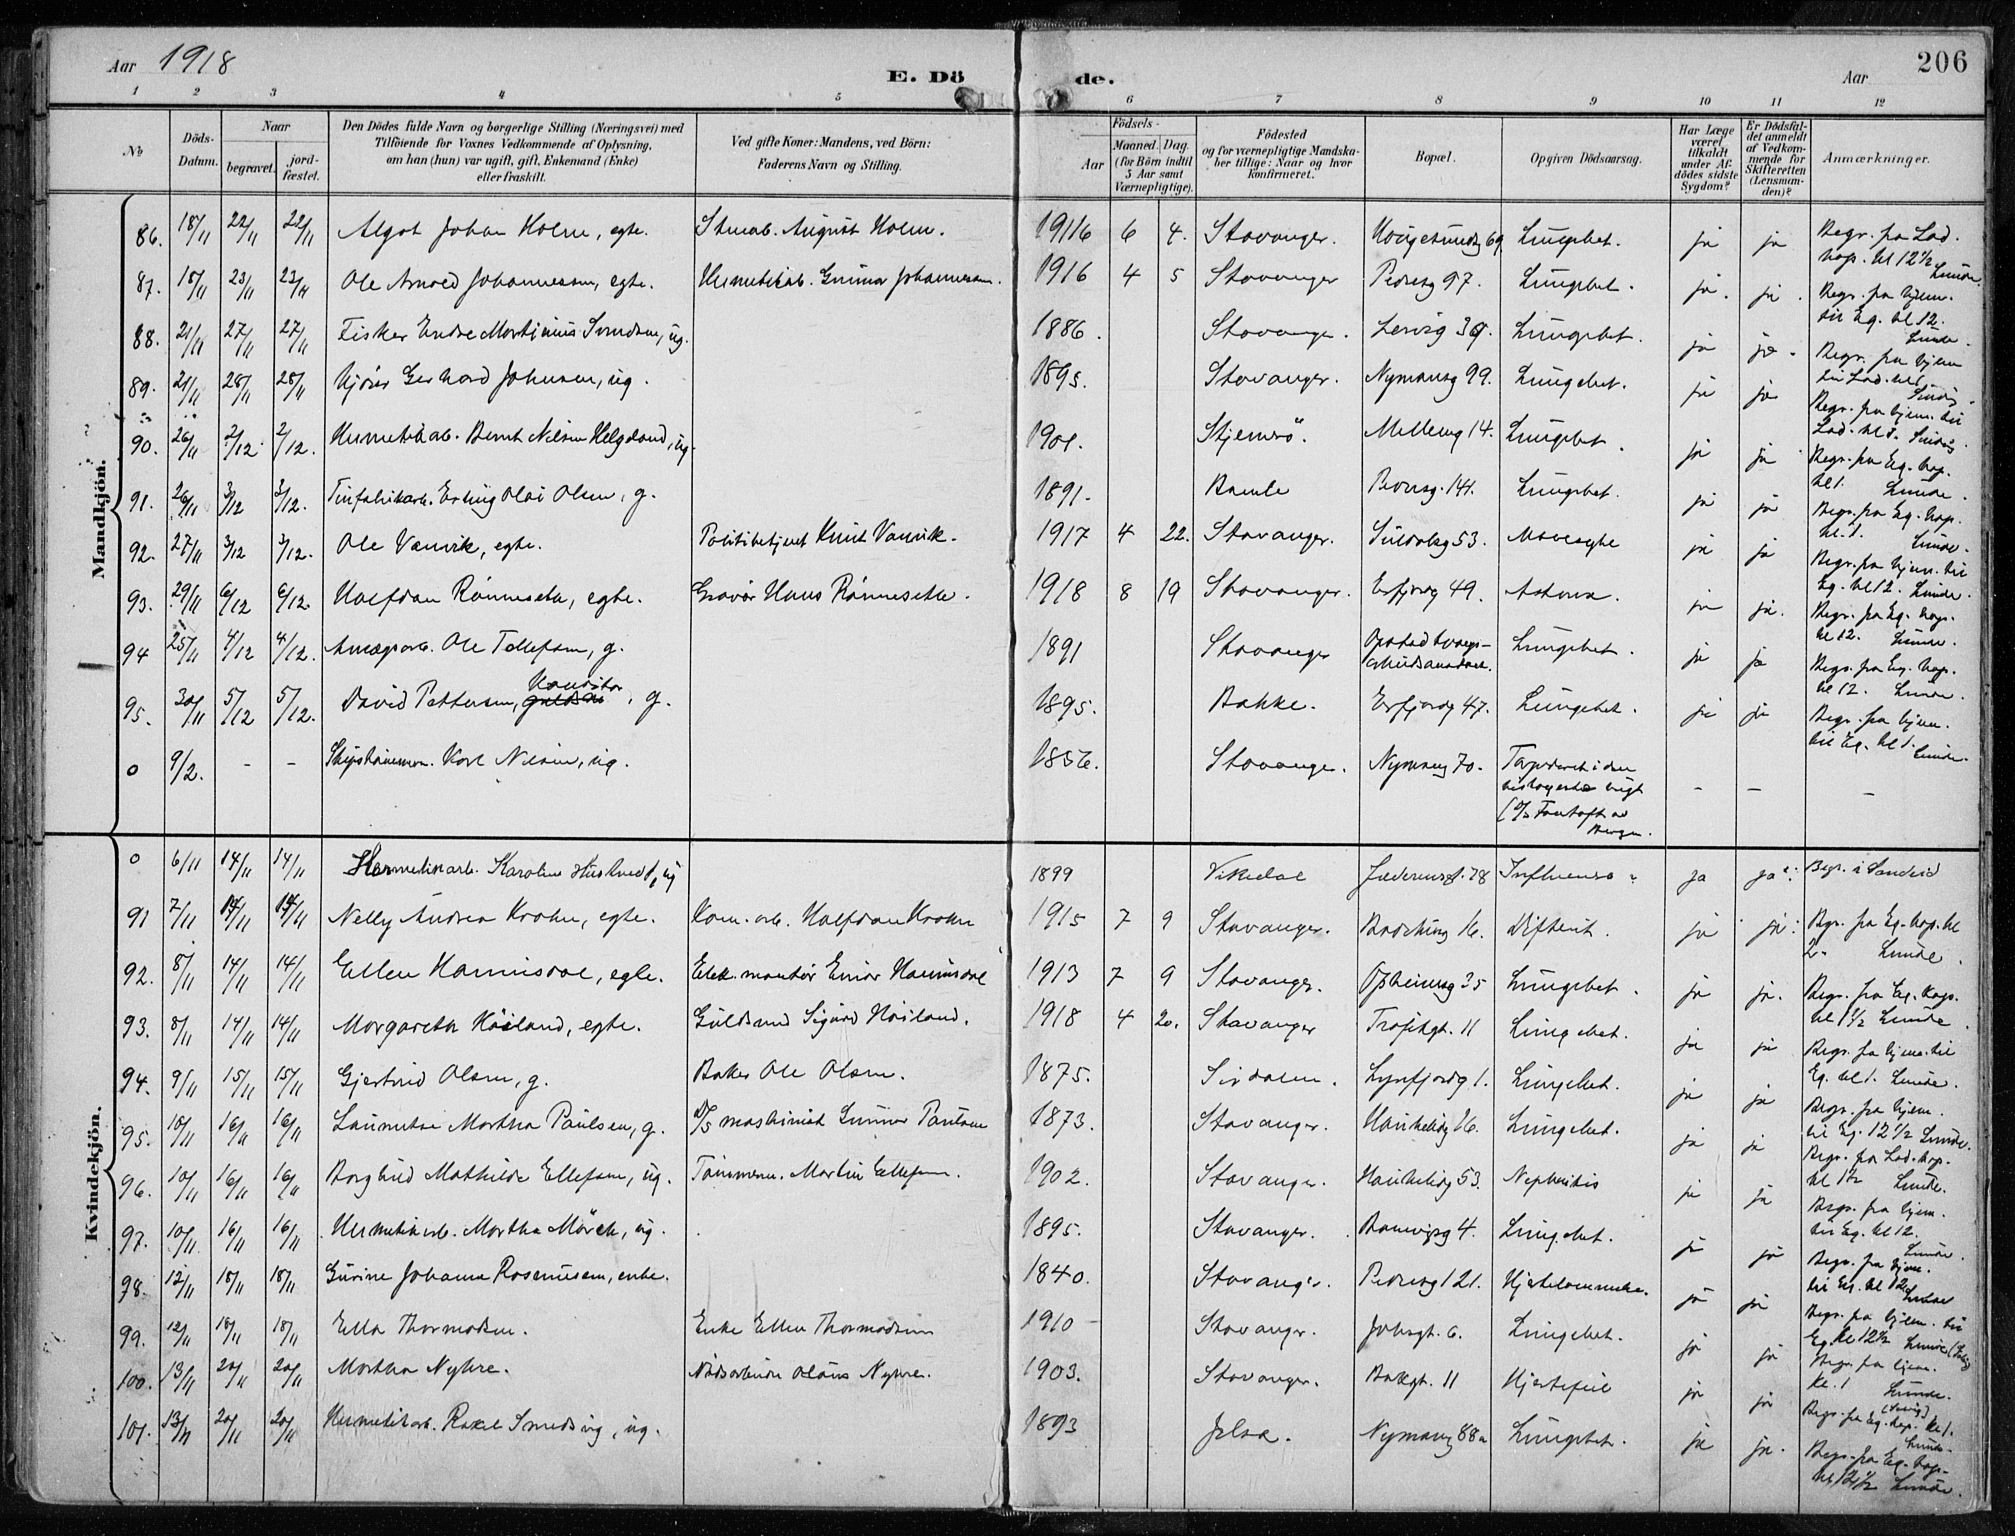 Aar 1918
E. Dö
de.
Aar
206
1 2 3 4 5 6 7 8 9 10 11 12
No
Döds-Datum.
Naar
begravet.
jord-fæstet.
Den Dödes fulde Navn og borgerlige Stilling (Næringsvei) med
Tilföiende for Voxnes Vedkommende af Oplysning,
om han (hun) var ugift, gift, Enkemand (Enke)
eller fraskilt.
Ved gifte Koner: Mandens, ved Börn:
Faderens Navn og Stilling.
Födsels-
Aar
Maaned. Dag.
(for Börn indtil
5 Aar samt
Værnepligtige).
Födested
og for værnepligtige Mandska-
ber tillige: Naar og hvor
konfirmeret.
Bopæl.
Opgiven Dödsaarsag.
Har Læge
været
tilkaldt
under Af-
dödes sidste
Sygdom?
Er Dödsfal-
det anmeldt
af Vedkom-
mende for
Skifteretten
(Lensman-
den)?
Anmærkninger.
Mandkjön.
86. 18/11 22/11 22/11 Algot Johan Holm, egte. August Holm. 1916 6 4. Stavanger. Lungebet. ja ja Begr. fra Lad. kap. kl 12½ Lunde
87. 18/11 23/11 23/11 Ole Arnold Johannessen, egte. Hermetikarb. Gunnar Johannessen. 1916 4 5 Stavanger Pedersg 97. Lungebet. ja. ja. Begr. fra hjem. til Eg. kl 12. Lunde
88. 21/11 27/11 27/11 Fisker Endre Martinius Svendsen, ug. 1886. Stavanger. Lervig 39. Lungebet. ja ja. Begr. fra hjem til Lad. Lunde
89. 21/11 28/11 28/11 Gerhard Johnsen, ug. 1895. Stavanger. Nymansg 99. Lungebet. ja ja Begr. fra hjem. til Lad. kl 1. Lunde
90. 26/11 2/12. 2/12. Hermetikarb. Bernt Nilsen Helgeland, ug. 1901. Stjernerö. Lungebet. ja ja Begr. fra Eg. kap. kl 1. Lunde.
91. 26/11 3/12 3/12. Tinfabrikarb. Erling Olai Olsen, g. 1891. Bamle 141. Lungebet. ja ja Begr. fra Eg. kap. kl. 1. Lunde.
92. 27/11 3/12 3/12. Ole Vanvik, egte. Politibetjent Knut Vanvik. 1917 4 22. Stavanger. Suldalsg 53. Mavesyke ja ja Begr. fra hjem. til Eg. kl 12. Lunde.
93. 29/11 6/12 6/12. Halfdan Rönneseth, egte. Gravör Hans Rönnesette. 1918 8 19 Stavanger. Erfjordg 49. Astma. ja ja. Begr. fra Eg. kap. kl 12. Lunde.
94 25/11 4/12 4/12. Anlægsarb. Ole Tollefsen, g. 1891 Stavanger Opstad tvangs-arbeidsanstalt. Lungebet. ja ja Begr. fra Eg. kap. kl 12. Lunde.
95. 30/11 5/12 5/12. David Pettersen, Konditor, g. 1895. Bakke. Erfjordg 47. Lungebet. ja ja Begr. fra hjem. til Eg. kl 1. Lunde.
0 9/2. - - Skipstömmerm. Karl Nilsen, ug. 1856. Stavanger. Nymansg 70. Torpederet i den
(D/S Fantoft av Bergen. - - -
Kvindekjön.
0 6/11 14/11 14/11 Hermetikarb. Karoline Huskvedt, ug 1899 Vikedal Jæderensg. 78 Influensa. ja ja Begr. i Sandeid
91 7/11 14/11 14/11 Nelly Andrea Krohn, egte. Kom. arb. Halfdan Krohn 1915 7 9 Stavanger. 16. Difterit. ja ja Begr. fra Eg. kap. kl 2. Lunde.
92. 8/11 14/11 14/11 Ellen Hannisdal, egte. Elek. montör Einar Hannisdal 1913 7 9 Stavanger. Opheimsg 35 Lungebet. ja ja. Begr. fra Eg. kap. kl 1½ Lunde.
93. 8/11 14/11 14/11 Margareth Höiland, egte. Guldsmed Sigurd Höiland. 1918 4 20. Stavanger Trafikgt. 11 Lungebet. ja ja Begr. fra hjem. til Eg. kl 1. Lunde.
94. 9/11 15/11 15/11 Gjertrud Olsen, g. Baker Ole Olsen. 1875. Sirdalen. Lynfjordg 1. Lungebet. ja ja Begr. fra hjem. til Eg. 12½ Lunde.
95. 10/11 16/11 16/11 Martha Paulsen, g. D/S maskinist Gunnar Paulsen 1873. Stavanger. Haukelidg 16. Lungebet. ja ja Begr. fra Lad. kap. kl 1½ Lunde.
96. 10/11 16/11 16/11 Borghild Mathilde Ellefsen, ug. Tömmerm. Martin Ellefsen. 1902. Stavanger. Haukelidg 53. Nephritis ja ja Begr. fra hjem. til Eg. kl 12. Lunde.
97. 10/11 16/11 16/11 Hermetikarb. Martha Mörch, ug. 1895. Stavanger. Banevigsg 4. Lungebet. ja ja Begr. fra hjem. til Eg. kl 12 Lunde
98. 12/11 18/11 18/11 Gurine Johanne Rasmussen, enke. 1840. Stavanger. Pedersg 121. Hjertelammelse. ja ja Begr. fra hjem. til Eg. kl 12½ Lunde
99. 12/11 18/11 18/11 Ella Thormodsen. Enke Ellen Thormodsen 1910 - Stavanger. Johsgt. 6. Lungebet. ja ja Begr. fra hjem. kl. 1 Lunde.
100. 13/11 20/11 20/11 Martha Nyhre. Olaus Nyhre. 1903. Stavanger. Bakgt. 11 Hjertefeil ja ja Begr. fra Eg. kap. kl 1. Lunde.
101. 13/11 20/11 20/11 Hermetikarb. Rakel Smedsvig, ug. 1893 Jelsa. Nymansg 88a Lungebet. ja ja. Begr. fra Eg. kap. kl 12½ Lunde.